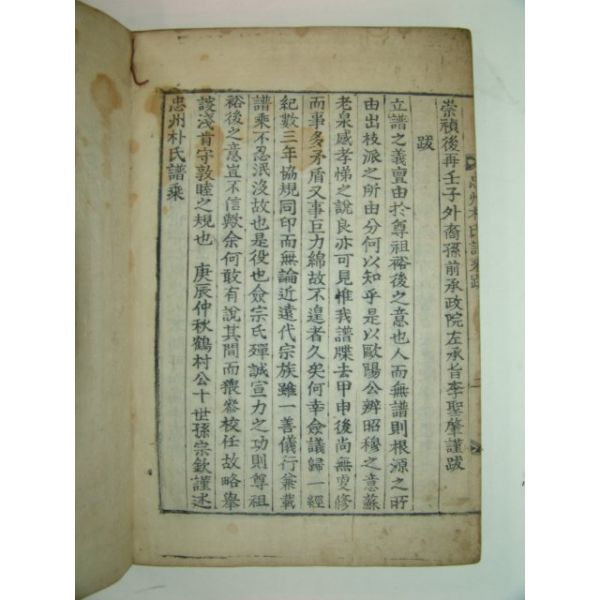 崇禎後再壬子外裔孫前承政院左承旨李聖肇謹跋
跋
立譜之義亶由於尊祖裕後之意也人而無譜則根源之所
由出枝派之所由分何以知乎是以歐陽公辨昭穆之意蘇
老泉感孝悌之說良亦可見惟我譜牒去甲申後尚無更修
而事多矛盾又事巨力綿故不遑者久矣何幸僉議歸一經
紀數三年協規同印而無論近遠代宗族雖一善儀行兼載
譜乘不忍泯沒故也是役也僉宗氏殫誠宣力之功則尊祖
裕後之意豈不信歟余何敢有說其間而猥忝校任故略舉
該淺肯守敦睦之規也 庚辰仲秋鶴村公十世孫宗欽謹述
忠州朴氏譜乘
忠州朴氏譜乘跋